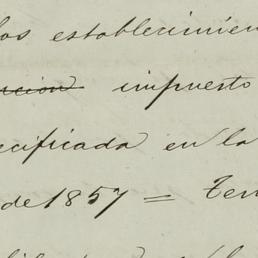 los establecimien
rcion impuesto
ecificada en la
de 1857 = Ten